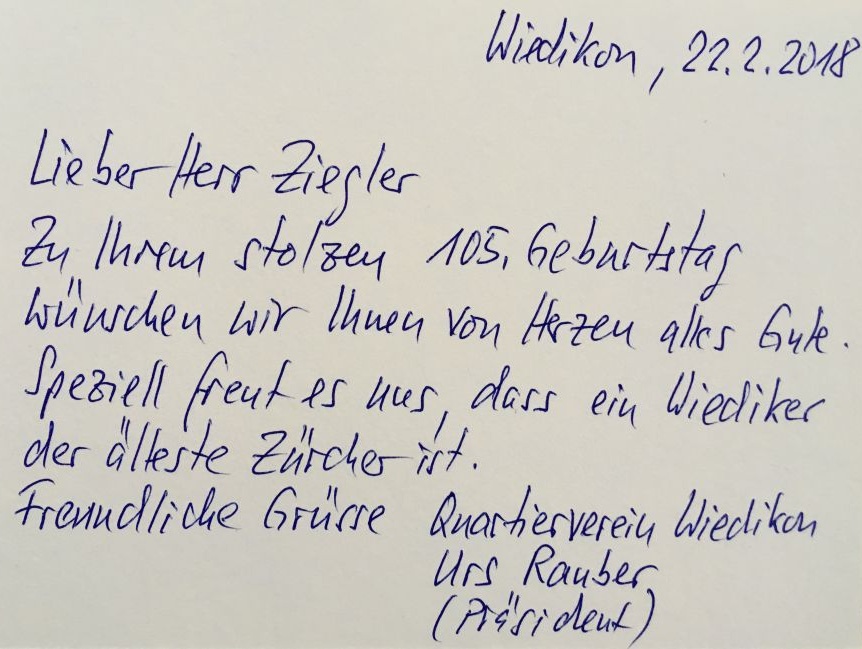 Wiedikon, 22.2.2018
Lieber Herr Ziegler
Zu Ihrem stolzen 105. Geburtstag
wünschen wir Ihnen von Herzen alles Gute.
Speziell freut es uns, dass ein Wiediker
der älteste Zürcher ist.
Freundliche Grüsse Quartierverein Wiedikon
Urs Rauber
(Präsident)